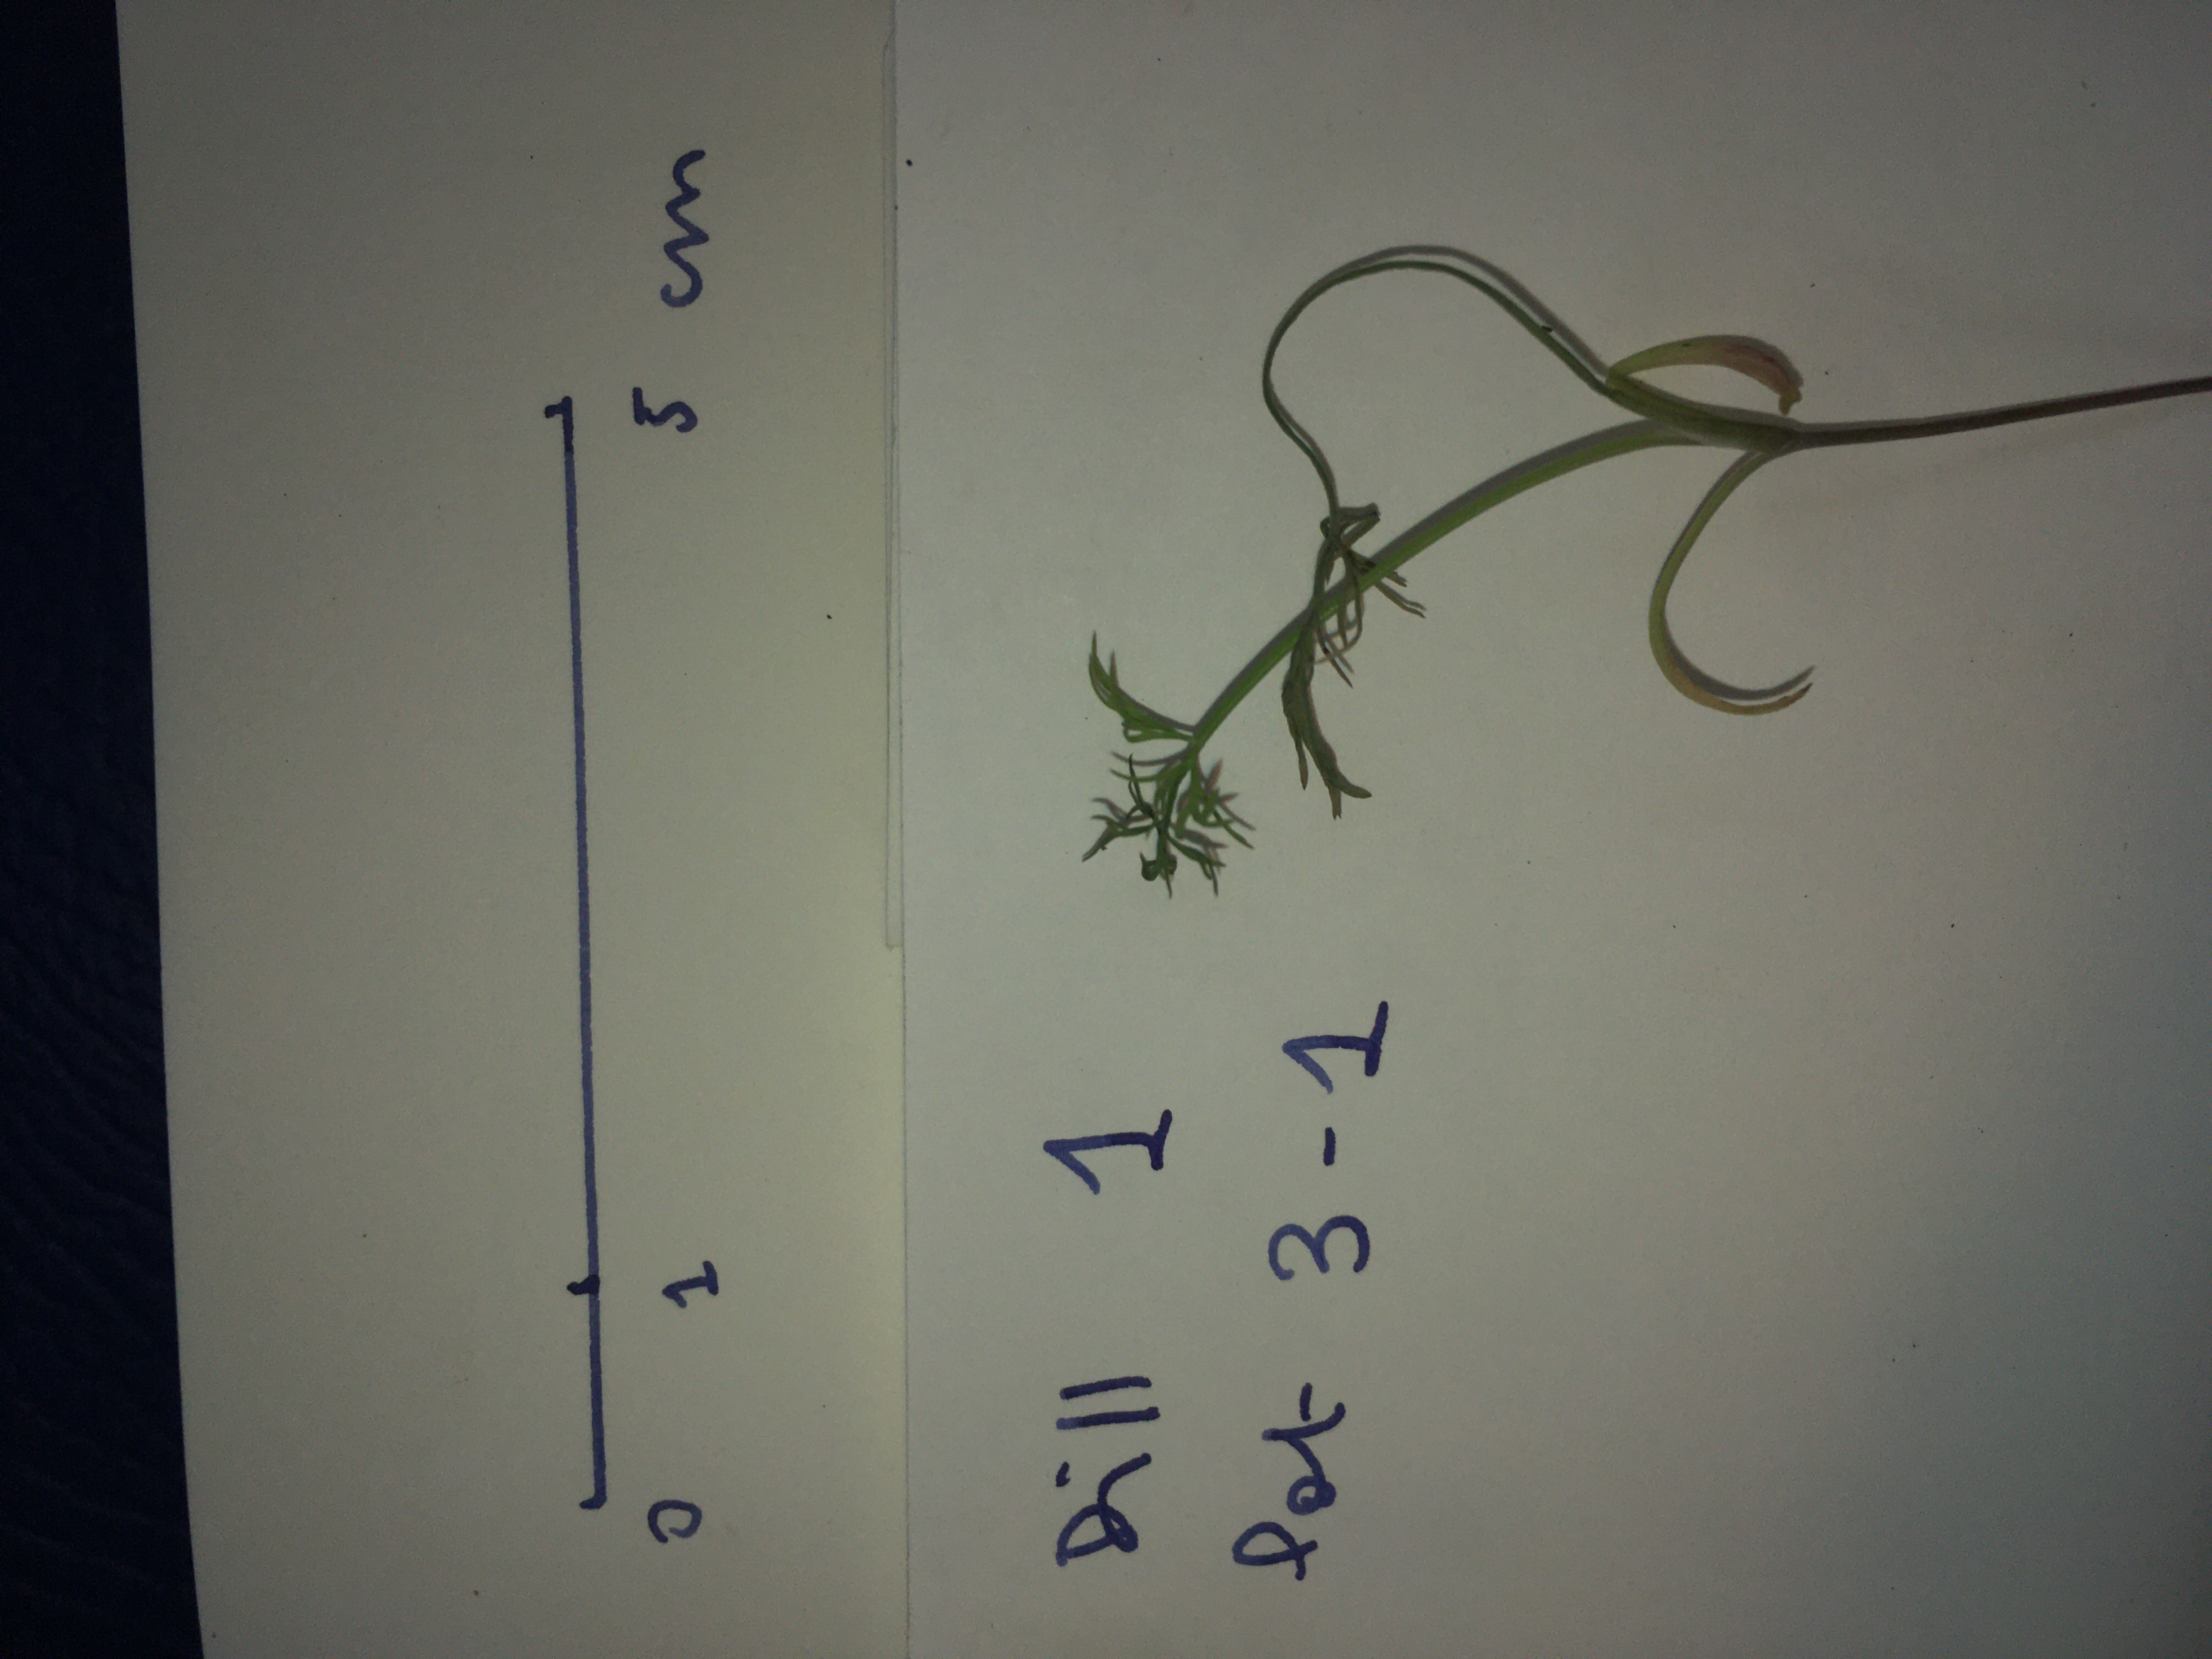 0 1 5 cm
Dill 1
Pot 3-1